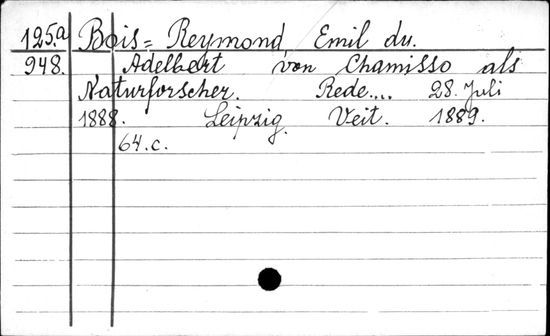 125.a Bois= Reymond, Emil du.
948. Adelbert von Chamisso als
Naturforscher. Rede... 28. Juli
1888. Leipzig. Veit. 1889.
64.c.